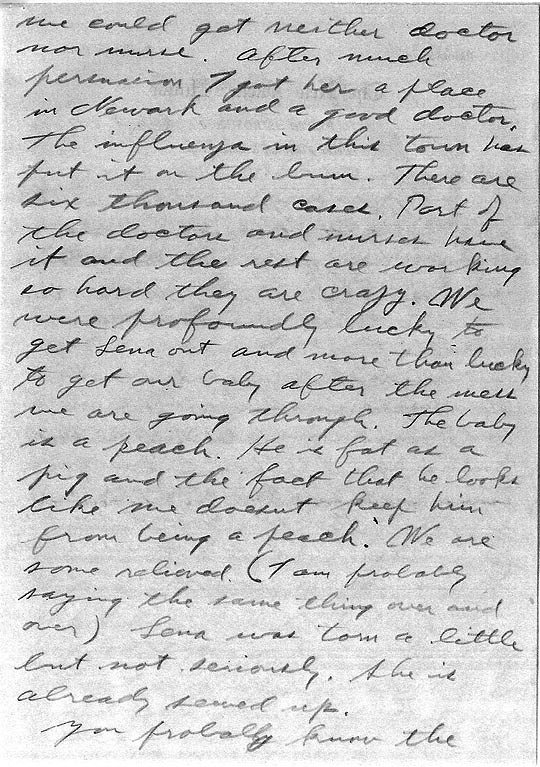 we could get neither doctor
nor nurse. After much
persuasion I got her a place
in Newark and a good doctor.
The influenza in this town has
put it on the bum. There are
six thousand cases. Part of
the doctors and nurses have
it and the rest are working
so hard they are crazy. We
were profoundly lucky to
get Lena out and more than lucky
to get our baby after the mess
we are going through. The baby
is a peach. He is fat as a
pig and the fact that he looks
like me doesnt keep him
from being a peach. We are
some relieved. (I am probably
saying the same thing over and
over) Lena was torn a little
but not seriously. She is
already sewed up.
You probably know the